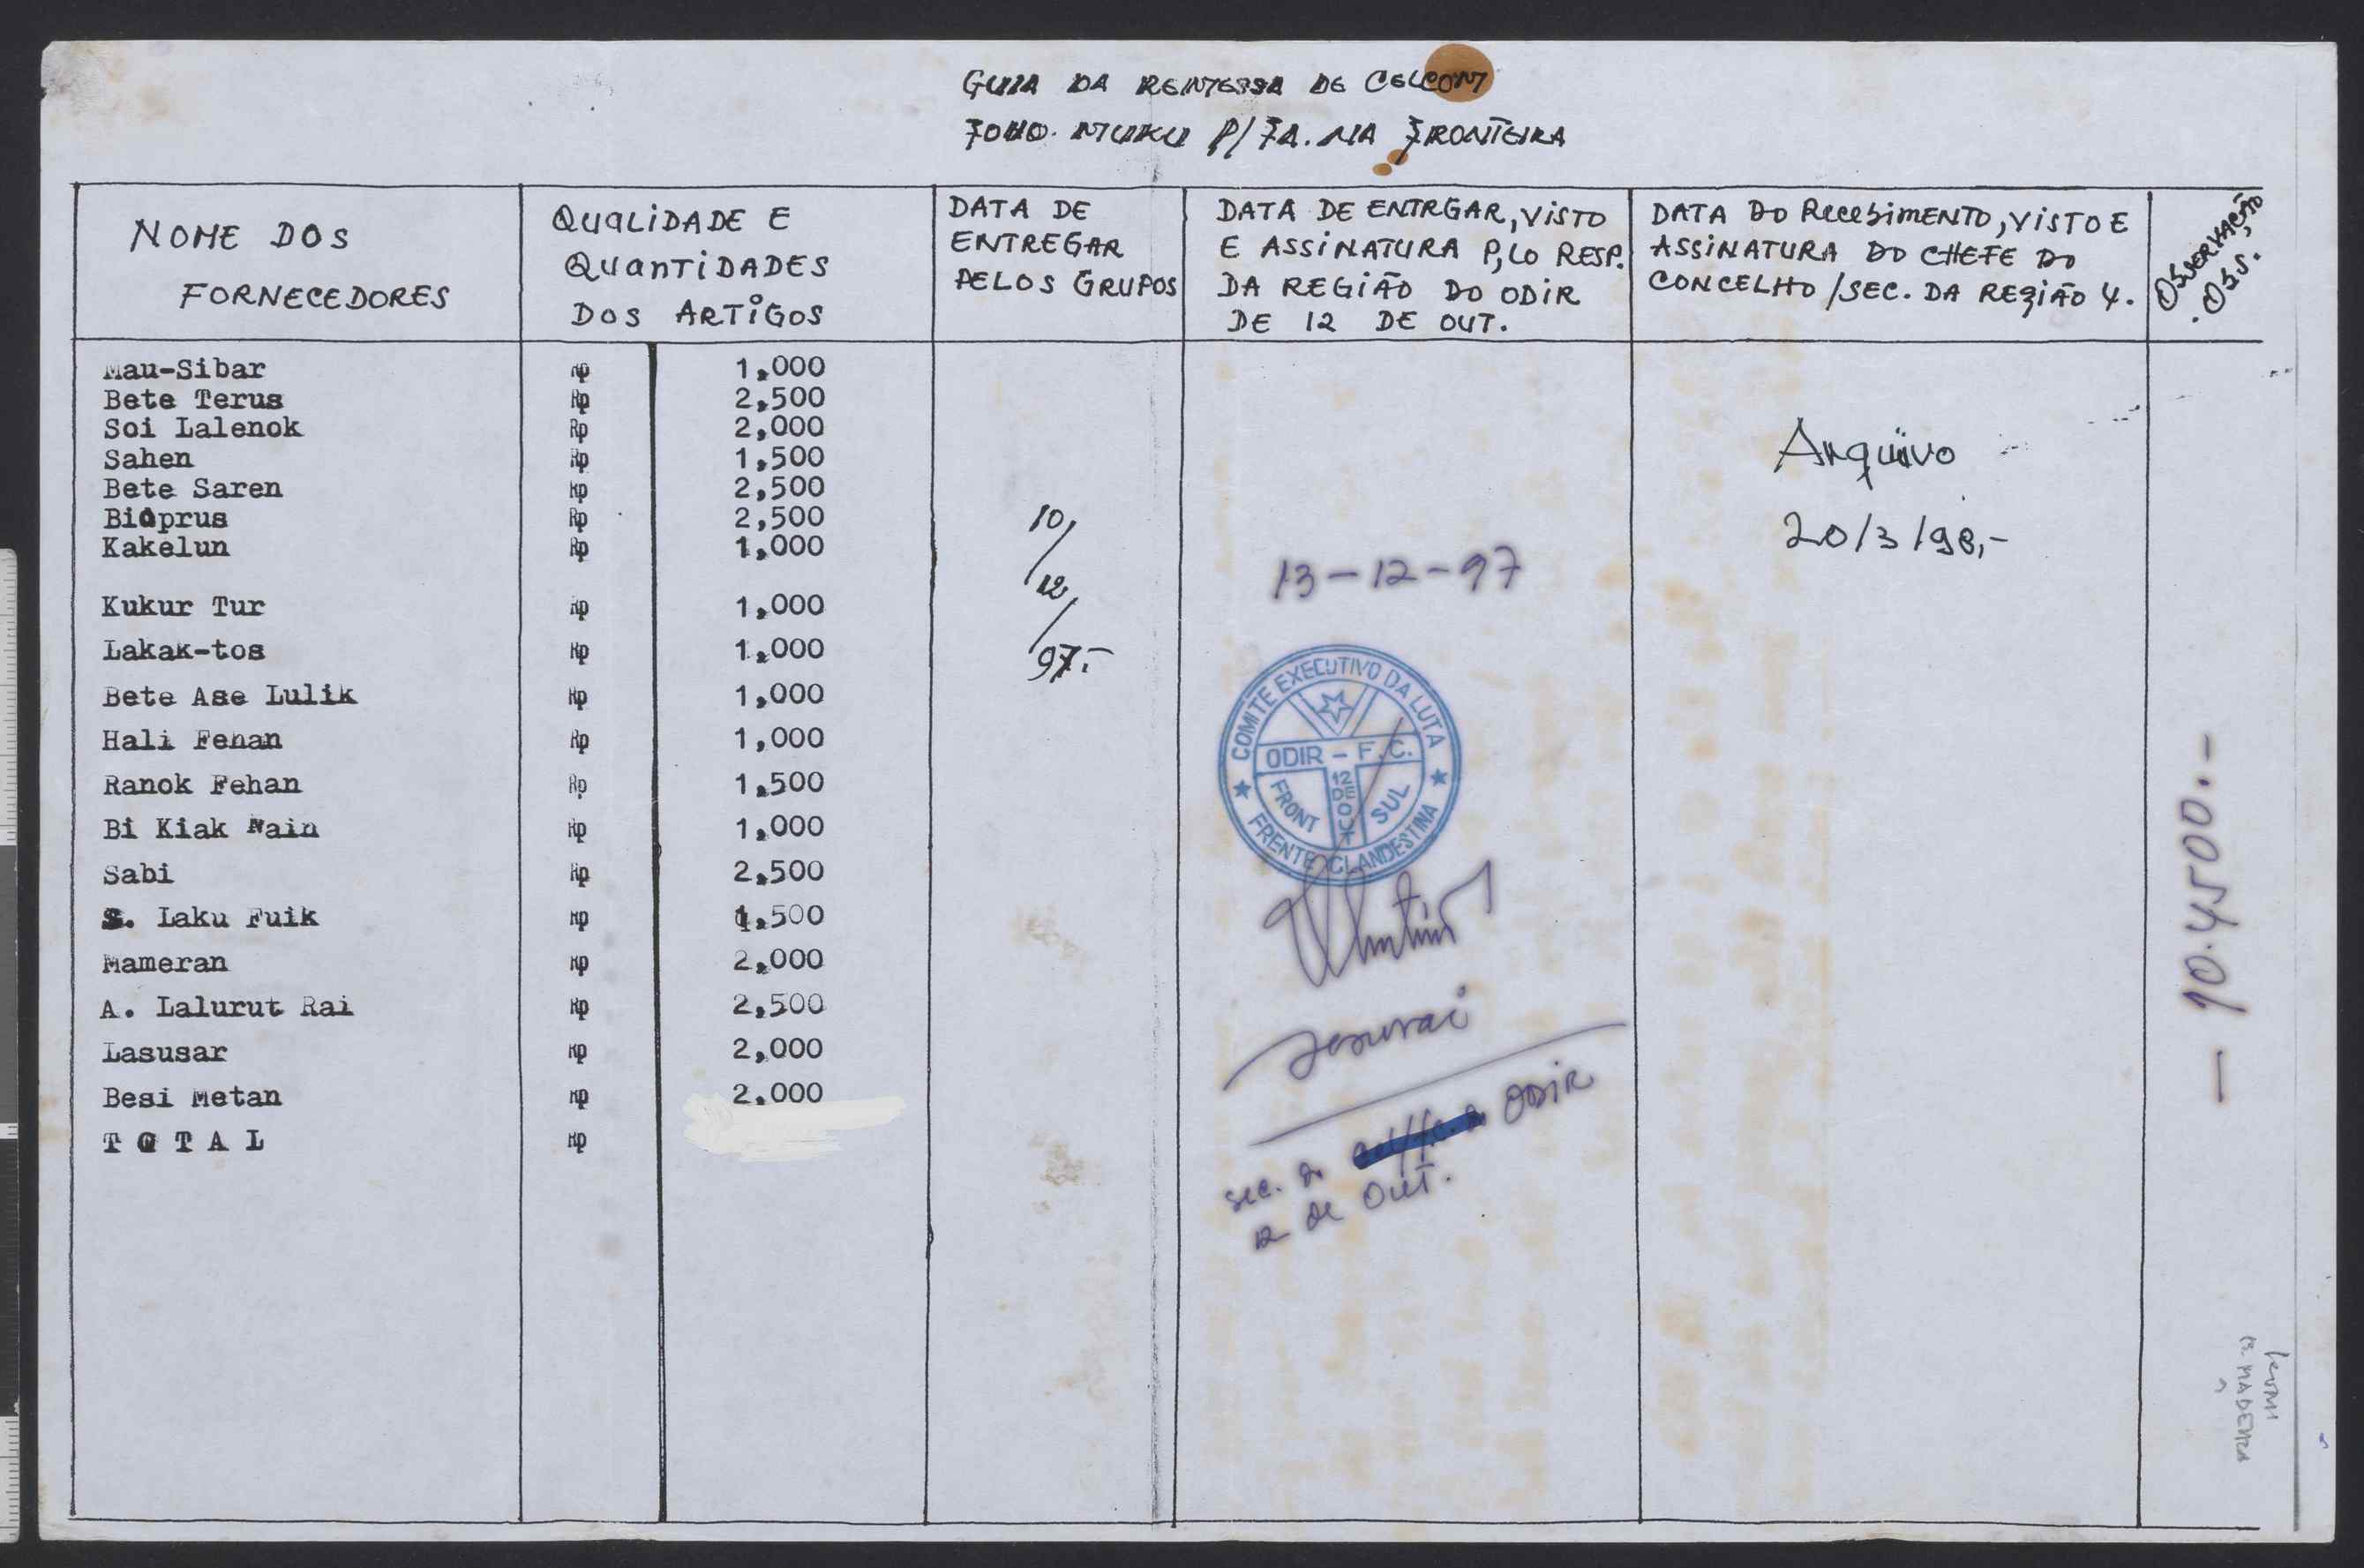 GUIA DA REMESSA DE CELCOM
FOHO. MUKU P/ FA. NA FRONTEIRA
NOME DOS
FORNECEDORES
QUALIDADE E
QUANTIDADES
DOS ARTIGOS
DATA DE
ENTREGAR
PELOS GRUPOS
DATA DE ENTRGAR, VISTO
E ASSINATURA P,LO RESP.
DA REGIÃO DO ODIR
DE 12 DE OUT.
DATA DO RecebimENTO, VISTO E
ASSINATURA DO CHEFE DO
CONCELHO / SEC. DA REGIÃO 4.
OBSERVAÇÃO
. OBS.
Mau-Sibar Rp 1,000
Bete Terus Rp 2,500
Soi Lalenok Rp 2,000
Sahen Rp 1,500
Bete Saren Rp 2,500
Bioprus Rp 2,500
Kakelun Rp 1,000
Kukur Tur Rp 1,000
Lakak-tos Rp 1,000
Bete Ase Lulik Rp 1,000
Hali Fehan Rp 1,000
Ranok Fehan Rp 1,500
Bi Kiak Nain Rp 1,000
Sabi Rp 2,500
S. Laku Fuik Rp 1,500
Mameran Rp 2,000
A. Lalurut Rai Rp 2,500
Lasusar Rp 2,000
Besi Metan Rp 2.000
T O T A L Rp
10/
12/
97.-
13-12-97
COMITE EXECUTIVO DA LUTA
ODIR - F.C.
FRONT 12 DE OUT SUL
FRENTE CLANDESTINA
sec. do ODIR
12 de OUT.
Arquivo
20/3/98,-
— 10.4500.-